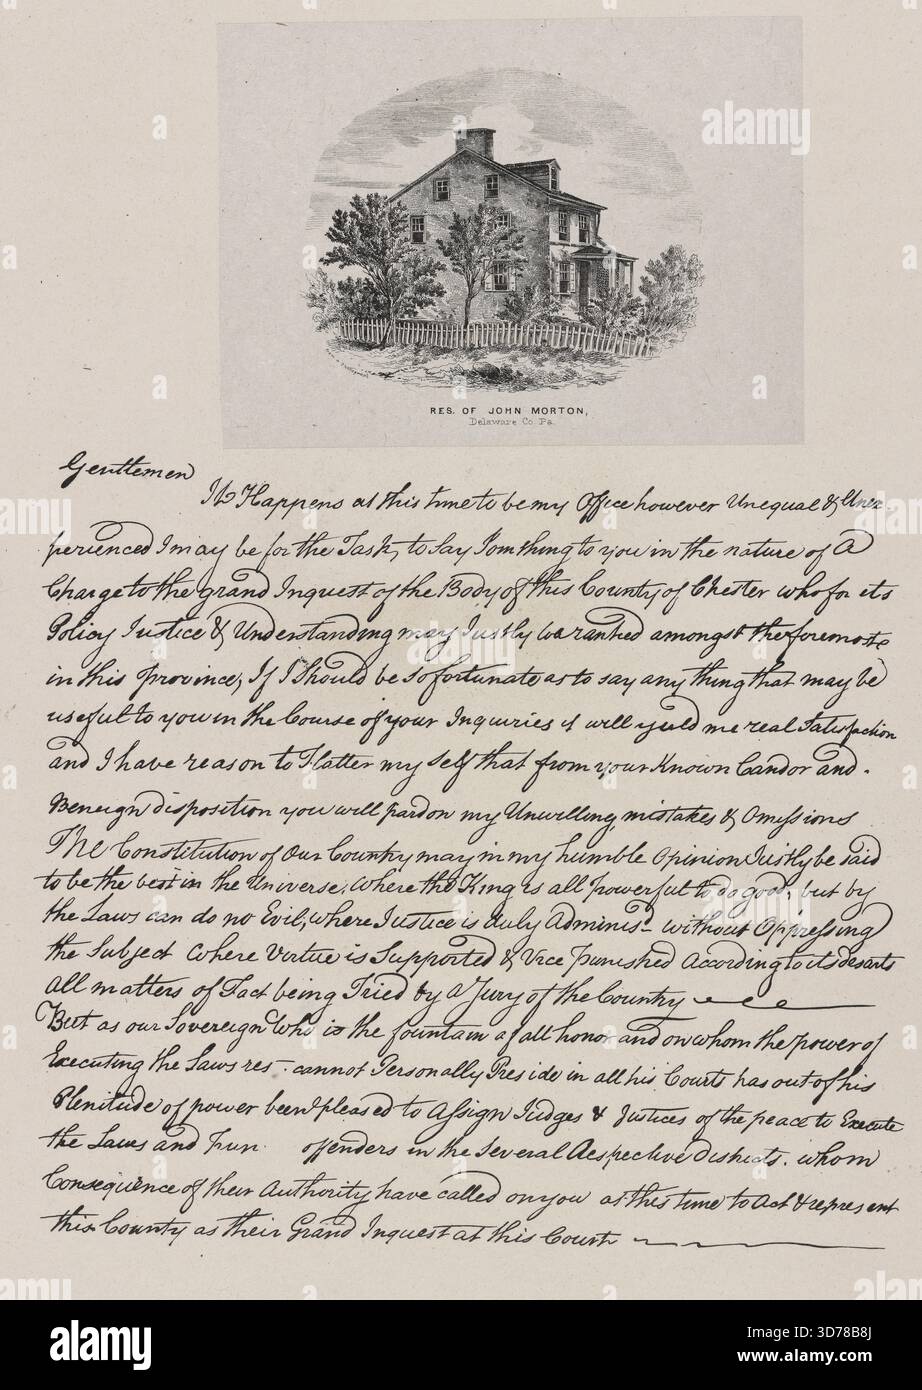 RES. OF JOHN MORTON,
Delaware Co. Pa.
Gentlemen
It Happens at this time to be my Office however Unequal & Unex-
perienced I may be for the Task, to Say Somthing to you in the nature of A
Charge to the grand Inquest of the Body of this County of Chester who for its
Policy Justice & Understanding may Justly be ranked amongst the foremost
in this Province, If I Should be So fortunate as to say any thing that may be
useful to you in the Course of your Inquiries it will yield me real Satisfaction
and I have reason to Flatter my Self that from your Known Candor and
Beneign disposition you will pardon my Unwilling mistakes & Omissions
The Constitution of Our Country may in my humble Opinion Justly be Said
to be the best in the Universe, Where the King is all powerful to do good, but by
the Laws can do no Evil, where Justice is duly Adminisd without Oppressing
the Subject where Virtue is Supported & Vice punished According to its Desarts
All matters of Fact being Tried by a Jury of the Country
But as our Sovereign Who is the fountain of all honor and on whom the power of
Executing the Laws res- cannot Personally Preside in all his Courts has out of his
Plenitude of power been pleased to Assign Judges & Justices of the peace to Execute
the Laws and Pun offenders in the Several Respective Districts. whom
Consequence of their Authority have called on you at this time to Act & represent
this County as their Grand Inquest at this Court
alamy
alamy
3D78B8J
www.alamy.com